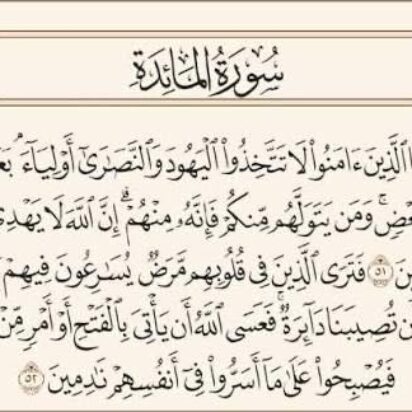 سُورَةُ المَائِدَةِ
ا الَّذِينَ ءَامَنُوا۟ لَا تَتَّخِذُوا۟ الْيَهُودَ وَالنَّصَارَىٰٓ أَوْلِيَآءَ ۘ بَعْ
عْضٍ ۚ وَمَن يَتَوَلَّهُم مِّنكُمْ فَإِنَّهُۥ مِنْهُمْ ۗ إِنَّ اللَّهَ لَا يَهْدِى
ينَ ٥١ فَتَرَى الَّذِينَ فِى قُلُوبِهِم مَّرَضٌ يُسَارِعُونَ فِيهِمْ
ن تُصِيبَنَا دَآئِرَةٌ ۚ فَعَسَى اللَّهُ أَن يَأْتِىَ بِالْفَتْحِ أَوْ أَمْرٍ مِّنْ
فَيُصْبِحُوا۟ عَلَىٰ مَآ أَسَرُّوا۟ فِىٓ أَنفُسِهِمْ نَادِمِينَ ٥٢